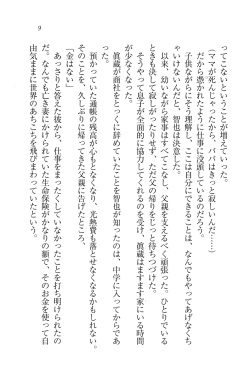 9
ってこないということが増えていった。
（ママが死んじゃったから、パパはきっと寂しいんだ……）
だから憑かれたように仕事に没頭しているのだろう。
子供ながらにそう理解し、ここは自分にできることは、なんでもやってあげなくち
ゃいけないんだと、智也は決意した。
以来、幼いながら家事はすべてこなし、父親を支えるべく頑張った。ひとりでいる
ときも決して寂しがったりせず、ただ父の帰りをじっと待ちつづけた。
そうやって息子が全面的に協力してくれるのを受け、眞蔵はますます家にいる時間
が少なくなった。
眞蔵が商社をとっくに辞めていたことを智也が知ったのは、中学に入ってからであ
った。
預かっていた通帳の残高が心もとなくなり、光熱費も落とせなくなるかもしれない
そのことを、久しぶりに帰ってきた父親に告げたところ、
「金はない」
あっさりと答えた彼から、仕事をまったくしていなかったことを打ち明けられたの
だ。なんでも亡き妻にかけられていた生命保険がかなりの額で、そのお金を使って自
由気ままに世界のあちこちを飛びまわっていたという。